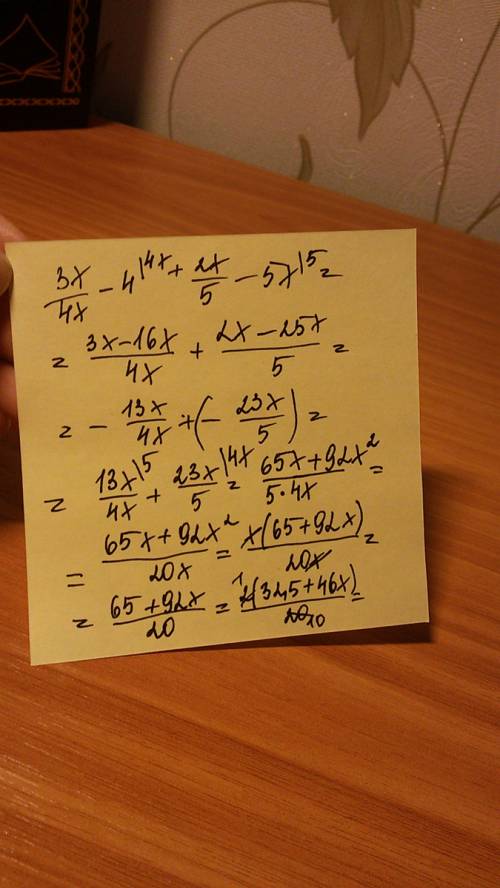 3x/4x - 4\4x + 2x/5 - 5x\5 =
= 3x-16x/4x + 2x-25x/5 =
= - 13x/4x + (- 23x/5) =
= 13x\5/4x + 23x\4x/5 = 65x+92x²/5·4x =
= 65x+92x²/20x = x(65+92x)/20x =
= 65+92x/20 = 2 1(32,5+46x)/20 10 =